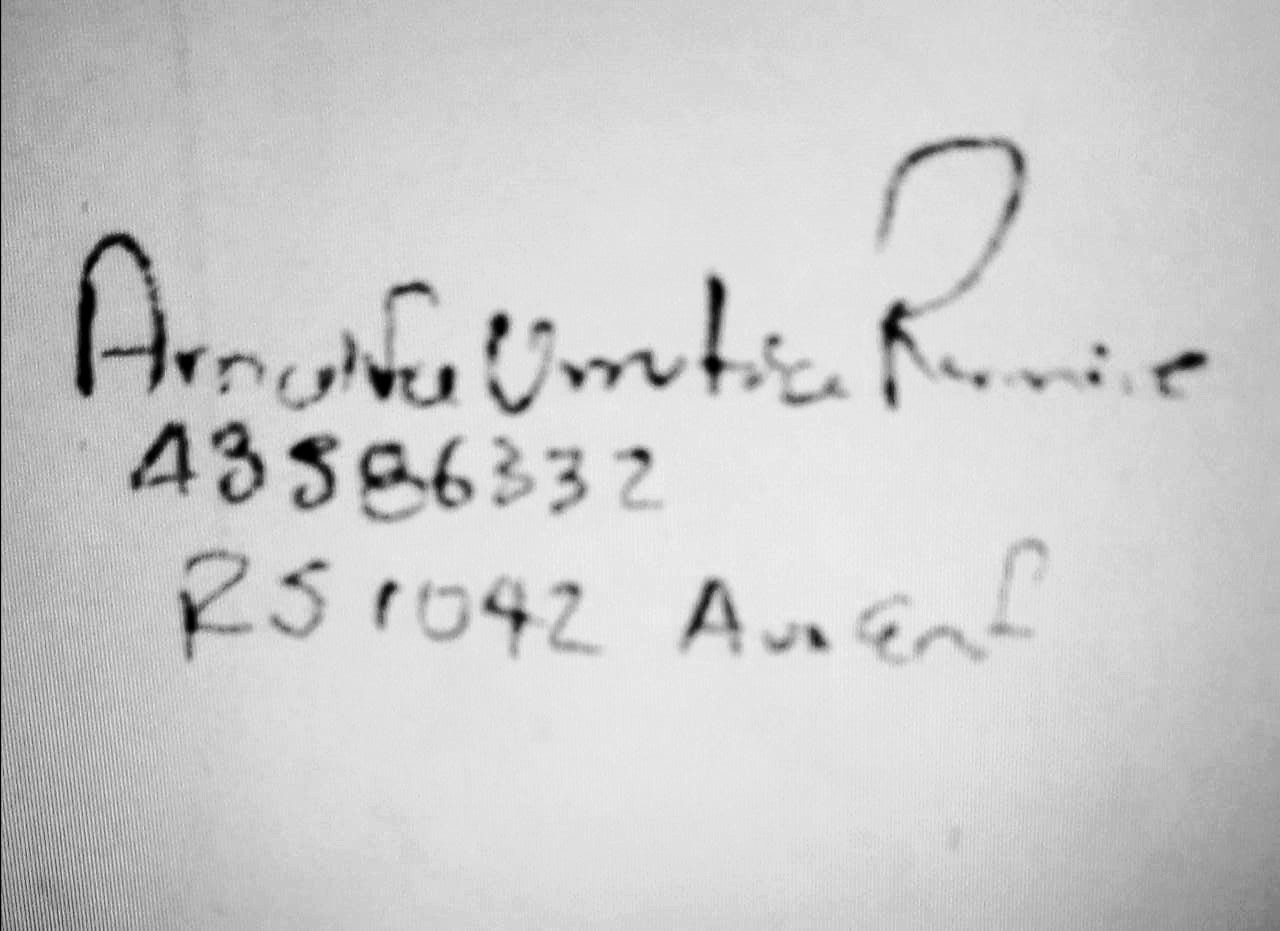 Arnulfo Urrutia Ramire
43586332
RS 1042 Aux Enf